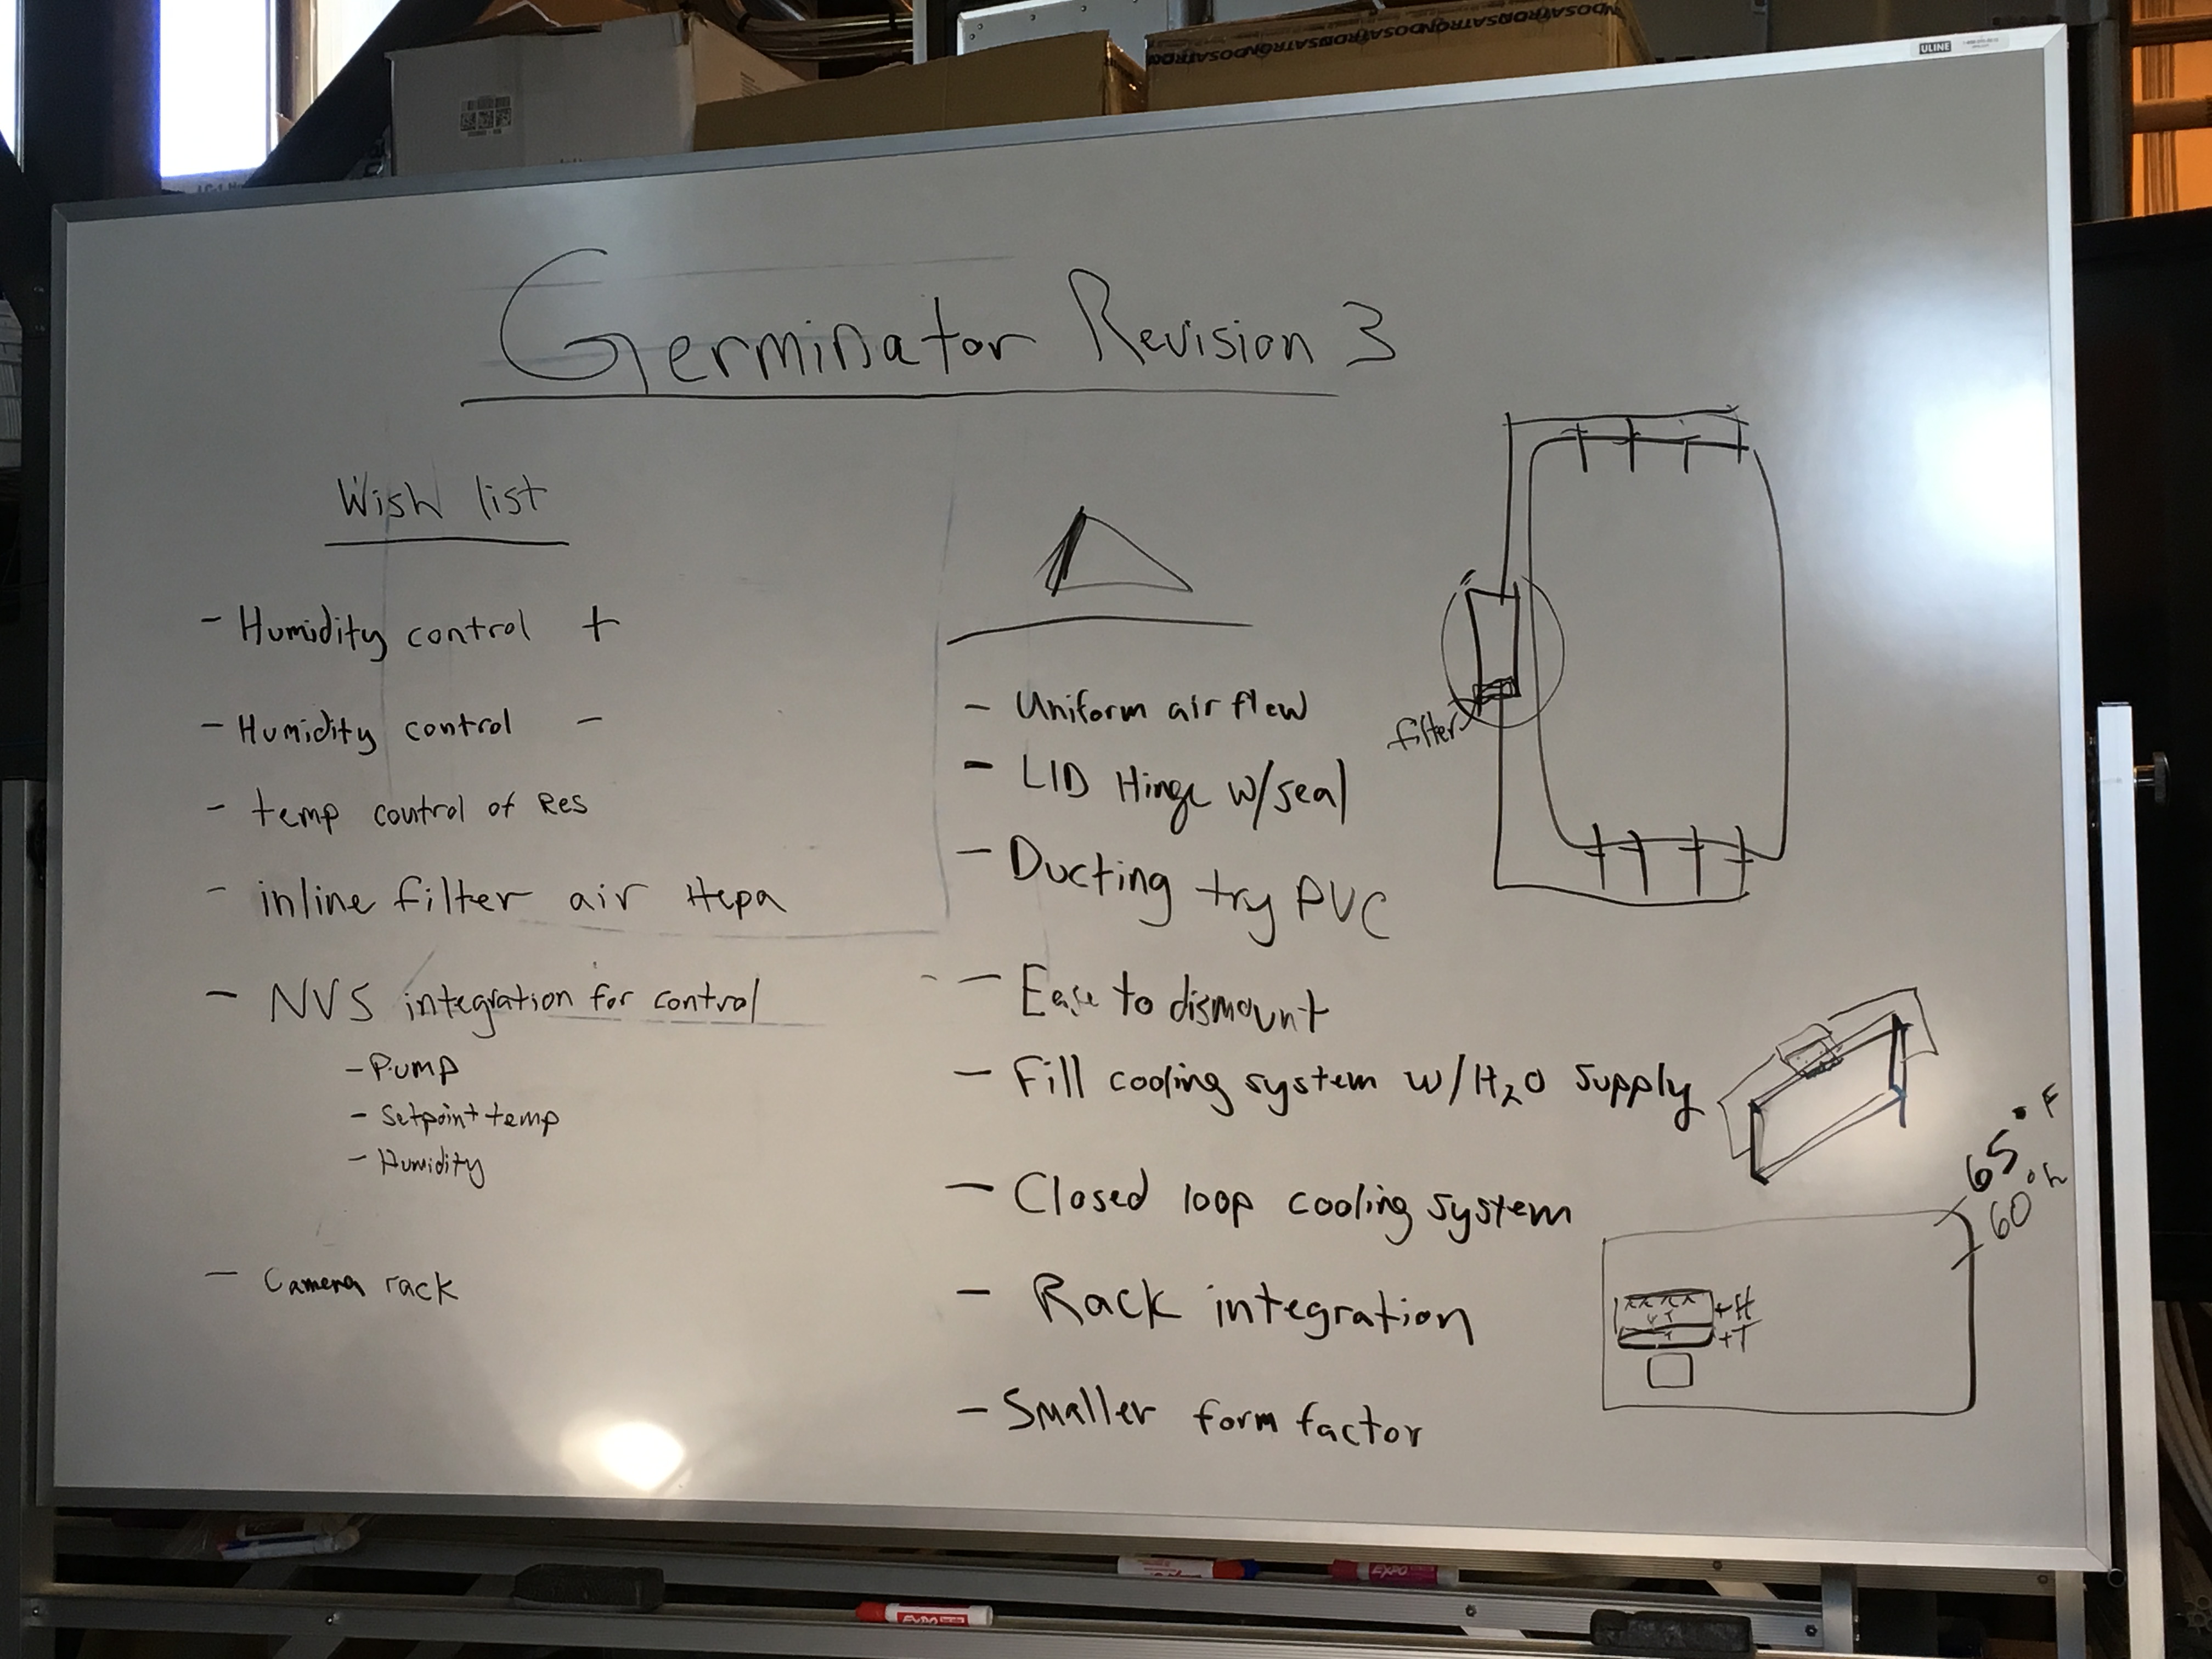 DOSATRON DOSATRON DOSATRON DOSATRON
ULINE
Germinator Revision 3
Wish list
- Humidity control +
- Humidity control -
- temp control of Res
- inline filter air Hepa
- NVS integration for control
- Pump
- Setpoint temp
- Humidity
- Camera rack
- Uniform air flow
- LID Hinge w/seal
- Ducting try PVC
- Ease to dismount
- Fill cooling system w/H2O supply
- Closed loop cooling system
- Rack integration
- Smaller form factor
filter
65°F
60°h
+H
+T
EXPO
EXPO